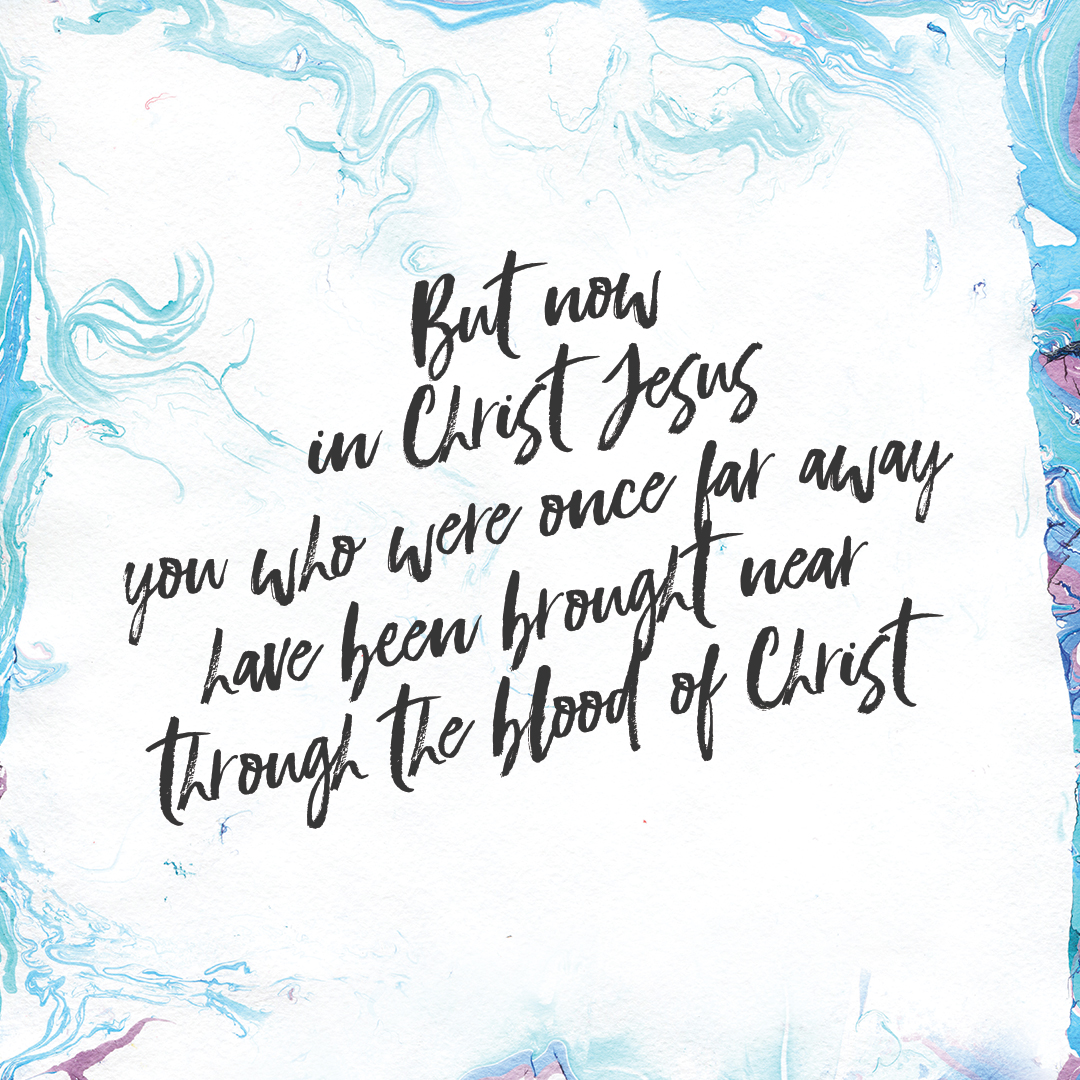 But now
in Christ Jesus
you who were once far away
have been brought near
through the blood of Christ